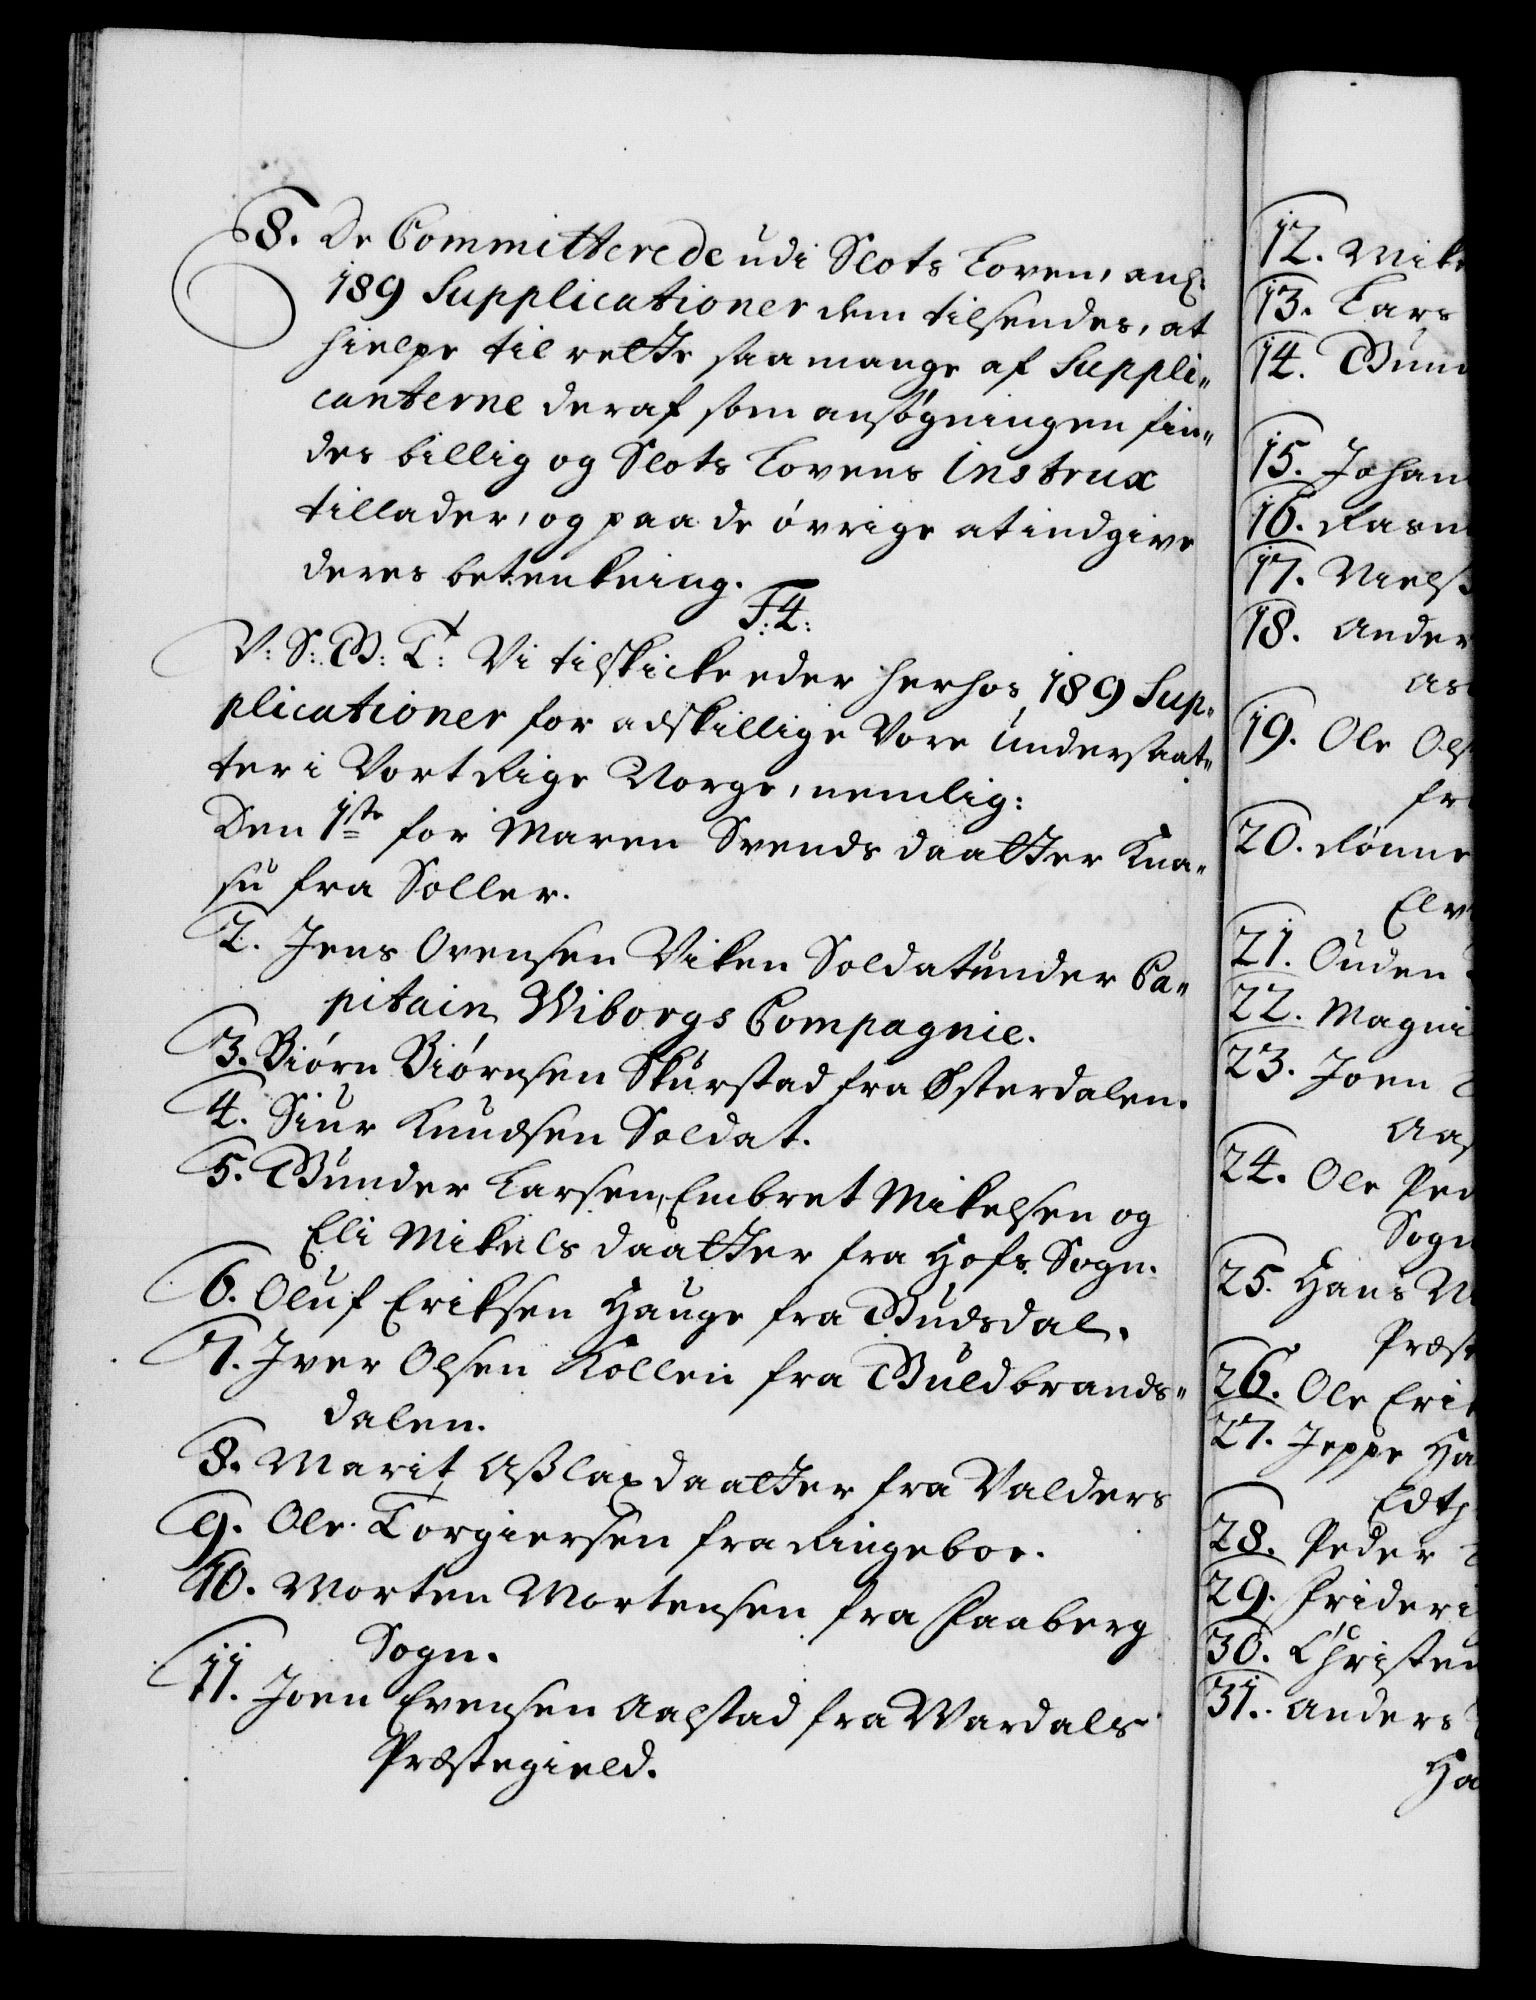 8. De Committerede udi Slots Loven, anl:
189 Supplicationer dem tilsendes, at
hielpe til rette saa mange af Suppli„
canterne deraf som ansøgningen fin„
des billig og Slots Lovens Instrux
tillader, og paa de øvrige at indgive
deres betenkning.
F: 4:
V: S: G: T: Vi tilskicke eder herhos 189 Sup„
plicationer for adskillige Vore Undersaat„
ter i Vort Rige Norge, nemlig:
Den 1ste for Maren Svends daatter Kna„
su fra Soller.
2. Jens Ovensen Viken Soldat under Ca„
pitain Wiborgs Compagnie.
3. Biørn Biørnsen Skurstad fra Østerdalen.
4. Siur Knudsen Soldat.
5. Gunder Larsen, Embret Mikelsen og
Eli Mikels daatter fra Hofs Sogn.
6. Oluf Eriksen Hauge fra Gudsdal.
7. Iver Olsen Kollen fra Guldbrands„
dalen.
8. Marit Aslaxdaatter fra Valders
9. Ole Torgiersen fra Ringeboe.
10. Morten Mortensen fra Faaberg
Sogn.
11. Joen Evensen Aalstad fra Wardals
Præstegield.
12. Mik
13. Lars
14. Gun
15. Johan
16. Rasm
17. Niels
18. Ander
19. Ole Ols
fr
20. Rønne
Elv
21. Ouden
22. Magni
23. Joen
Aas
24. Ole Ped
Sogn
25. Hans N
Præst
26. Ole Erik
27. Jeppe Ha
28. Peder
29. Frideri
30. Christen
31. Anders
Ha